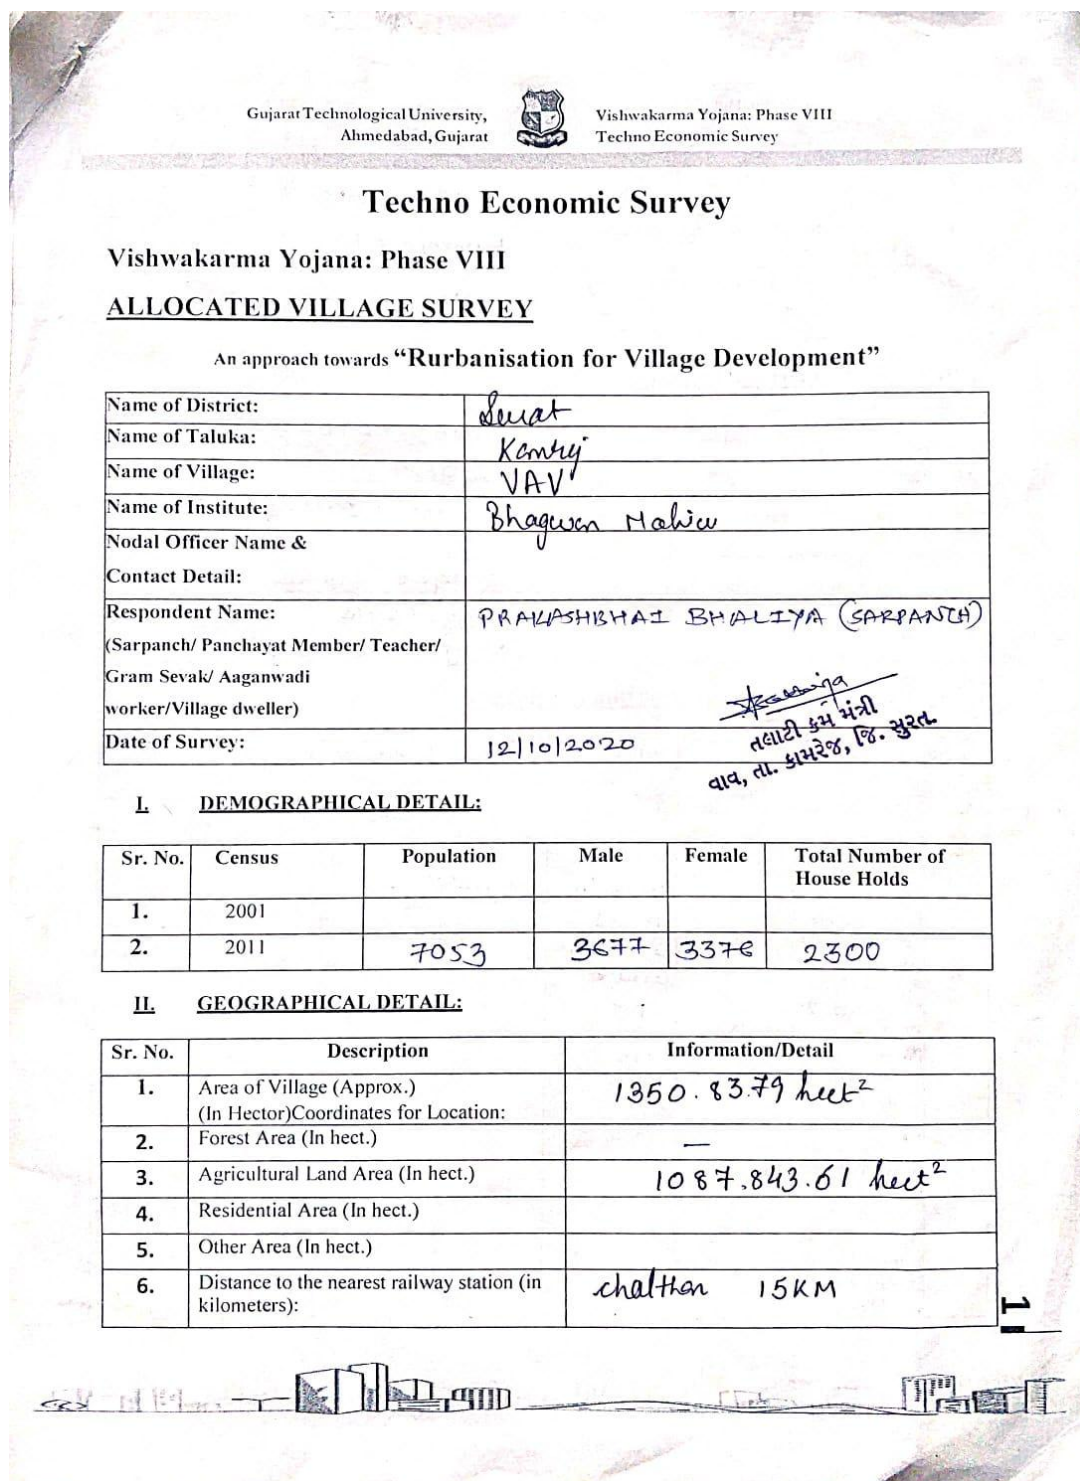 Gujarat Technological University, Vishwakarma Yojana: Phase VIII
Ahmedabad, Gujarat Techno Economic Survey
Techno Economic Survey
Vishwakarma Yojana: Phase VIII
ALLOCATED VILLAGE SURVEY
An approach towards “Rurbanisation for Village Development”
Name of District: Surat
Name of Taluka: Kamrej
Name of Village: VAV
Name of Institute: Bhagwan Mahiw
Nodal Officer Name &
Contact Detail:
Respondent Name: PRAKASHBHAI BHALIYA (SARPANCH)
(Sarpanch/ Panchayat Member/ Teacher/
Gram Sevak/ Aaganwadi
worker/Village dweller)
તલાટી કમ મંત્રી
વાવ, તા. કામરેજ, જિ. સુરત.
Date of Survey: 12/10/2020
I. DEMOGRAPHICAL DETAIL:
Sr. No. Census Population Male Female Total Number of
House Holds
1. 2001
2. 2011 7053 3677 3376 2300
II. GEOGRAPHICAL DETAIL:
Sr. No. Description Information/Detail
1. Area of Village (Approx.) 1350.83.79 hect²
(In Hector)Coordinates for Location:
2. Forest Area (In hect.) —
3. Agricultural Land Area (In hect.) 1087.843.61 hect²
4. Residential Area (In hect.)
5. Other Area (In hect.)
6. Distance to the nearest railway station (in chalthan 15KM
kilometers):
1